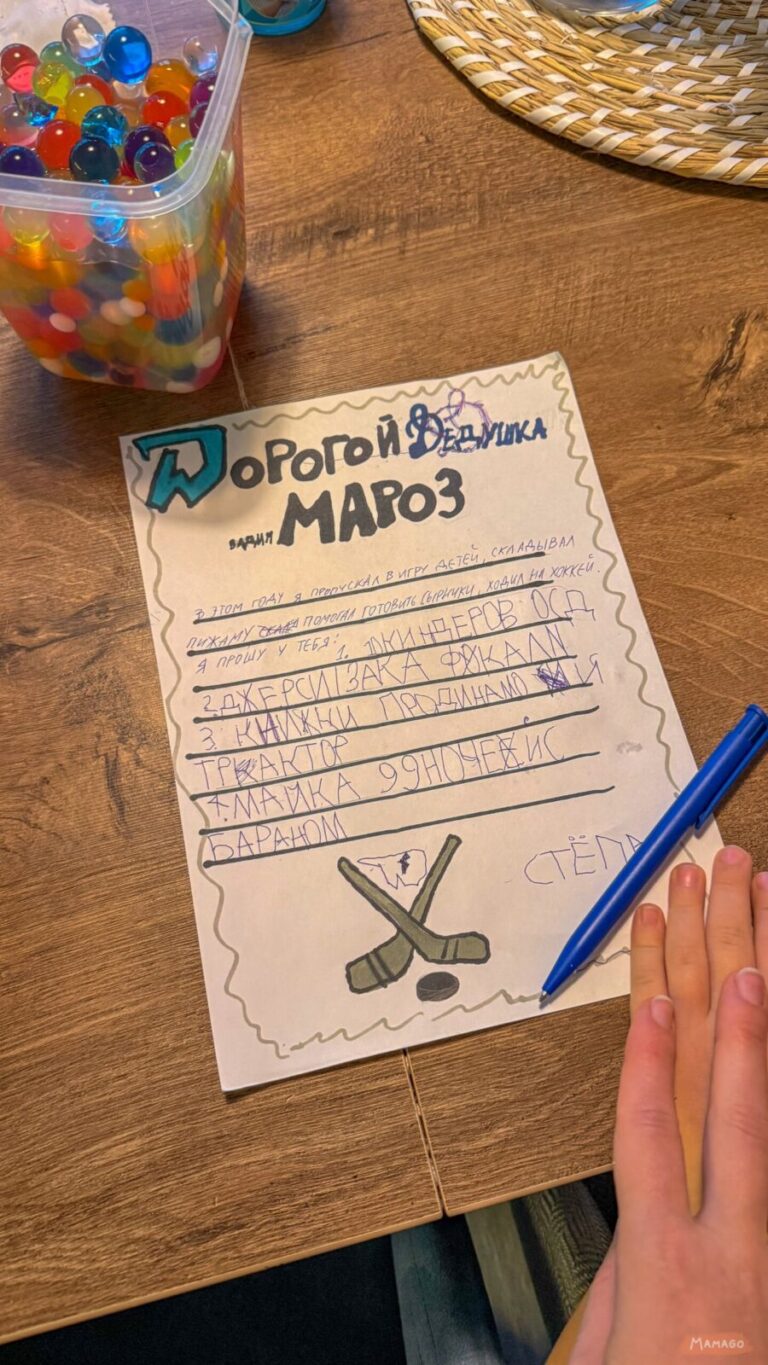 ДОРОГОЙ ДЕДУШКА
ВАДИМ МАРОЗ
В ЭТОМ ГОДУ Я ПРОПУСКАЛ В ИГРУ ДЕТЕЙ, СКЛАДЫВАЛ
ПИЖАМУ ПОМОГАЛ ГОТОВИТЬ СЫРНИКИ, ХОДИЛ НА ХОККЕЙ.
Я ПРОШУ У ТЕБЯ: 1. 10КИНДЕРОВ ОСД
2. ДЖЕРСИ ЗАКА ФУКАЛИ
3. КНИЖКИ ПРОДИНАМО Й
ТРАКТОР
4. МАЙКА 99НОЧЕЙС
БАРАНОМ
СТЁПА
MAMAGO